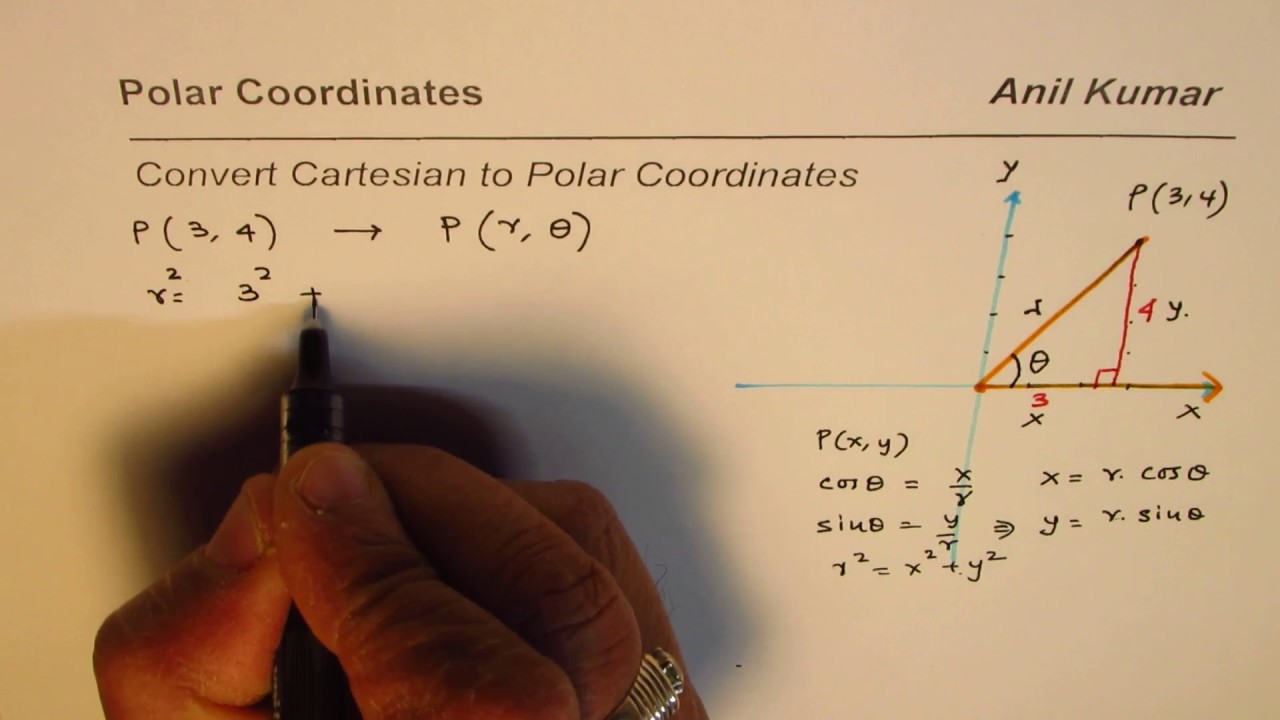 Polar Coordinates
Anil Kumar
Convert Cartesian to Polar Coordinates
P(3, 4) → P(r, θ)
r² = 3² +
y
P(3,4)
r
4 y.
θ
3
x
x
P(x, y)
cos θ = x/r x = r. cos θ
sin θ = y/r ⇒ y = r. sin θ
r² = x² + y²